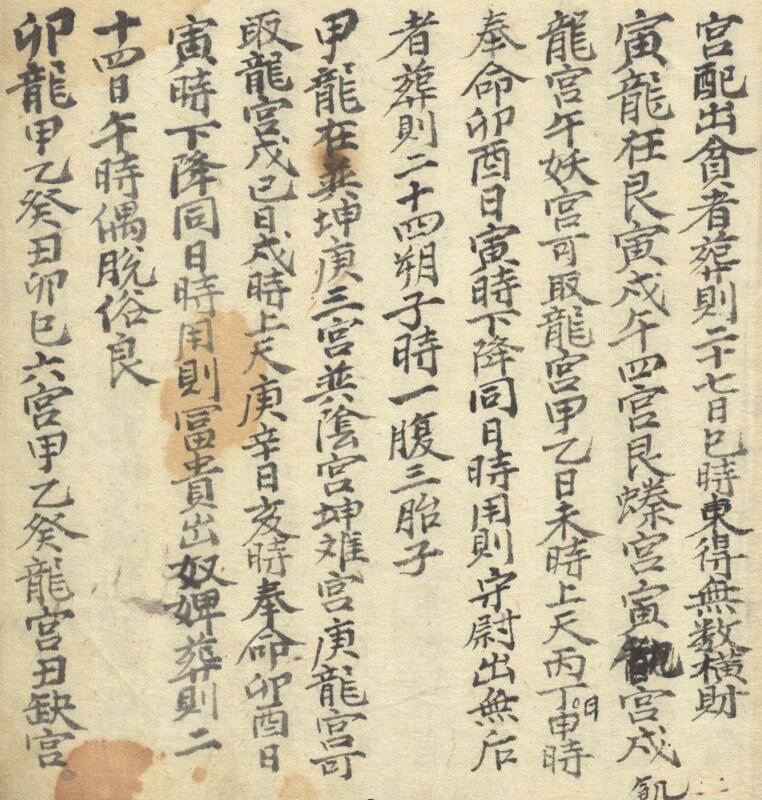 宮配出貧者葬則二十七日巳時東得無数橫財
寅龍在艮寅戌午四宮艮宮寅飢宮戌
龍宮午妖宮可取龍宮甲乙日未時上天丙丁日申時
奉命卯酉日寅時下降同日時用則守尉出無后
者葬則二十四朔子時一腹三胎子
甲龍在巽坤庚三宮巽陰宮坤宮庚龍宮可
取龍宮戊己日戌時上天庚辛日亥時奉命卯酉日
寅時下降同日時用則冨貴出奴婢葬則二
十四日午時偶脫俗良
卯龍甲乙癸丑卯巳六宮甲乙癸龍宮丑缺宮